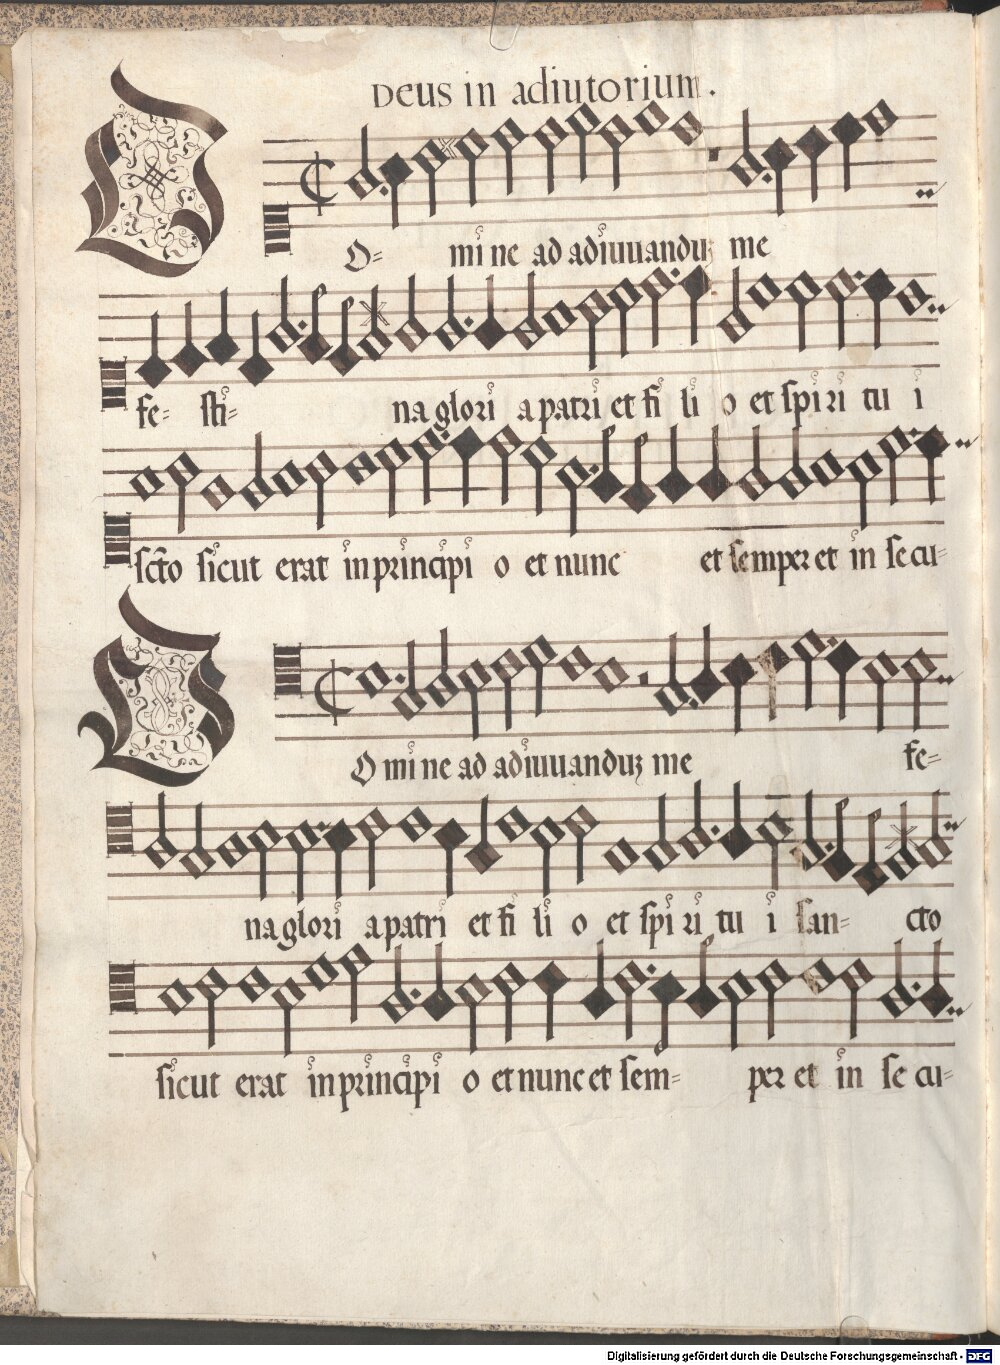 Deus in adiutorium.
DO= mi ne ad adiuuanduʒ me
fe= sti= na glori a patri et fi li o et spi ri tu i
scto sicut erat in principi o et nunc et semper et in se cu=
DO mi ne ad adiuuanduʒ me fe=
na glori a patri et fi li o et spi ri tu i san= cto
sicut erat in principi o et nunc et sem= per et in se cu=
Digitalisierung gefördert durch die Deutsche Forschungsgemeinschaft - DFG